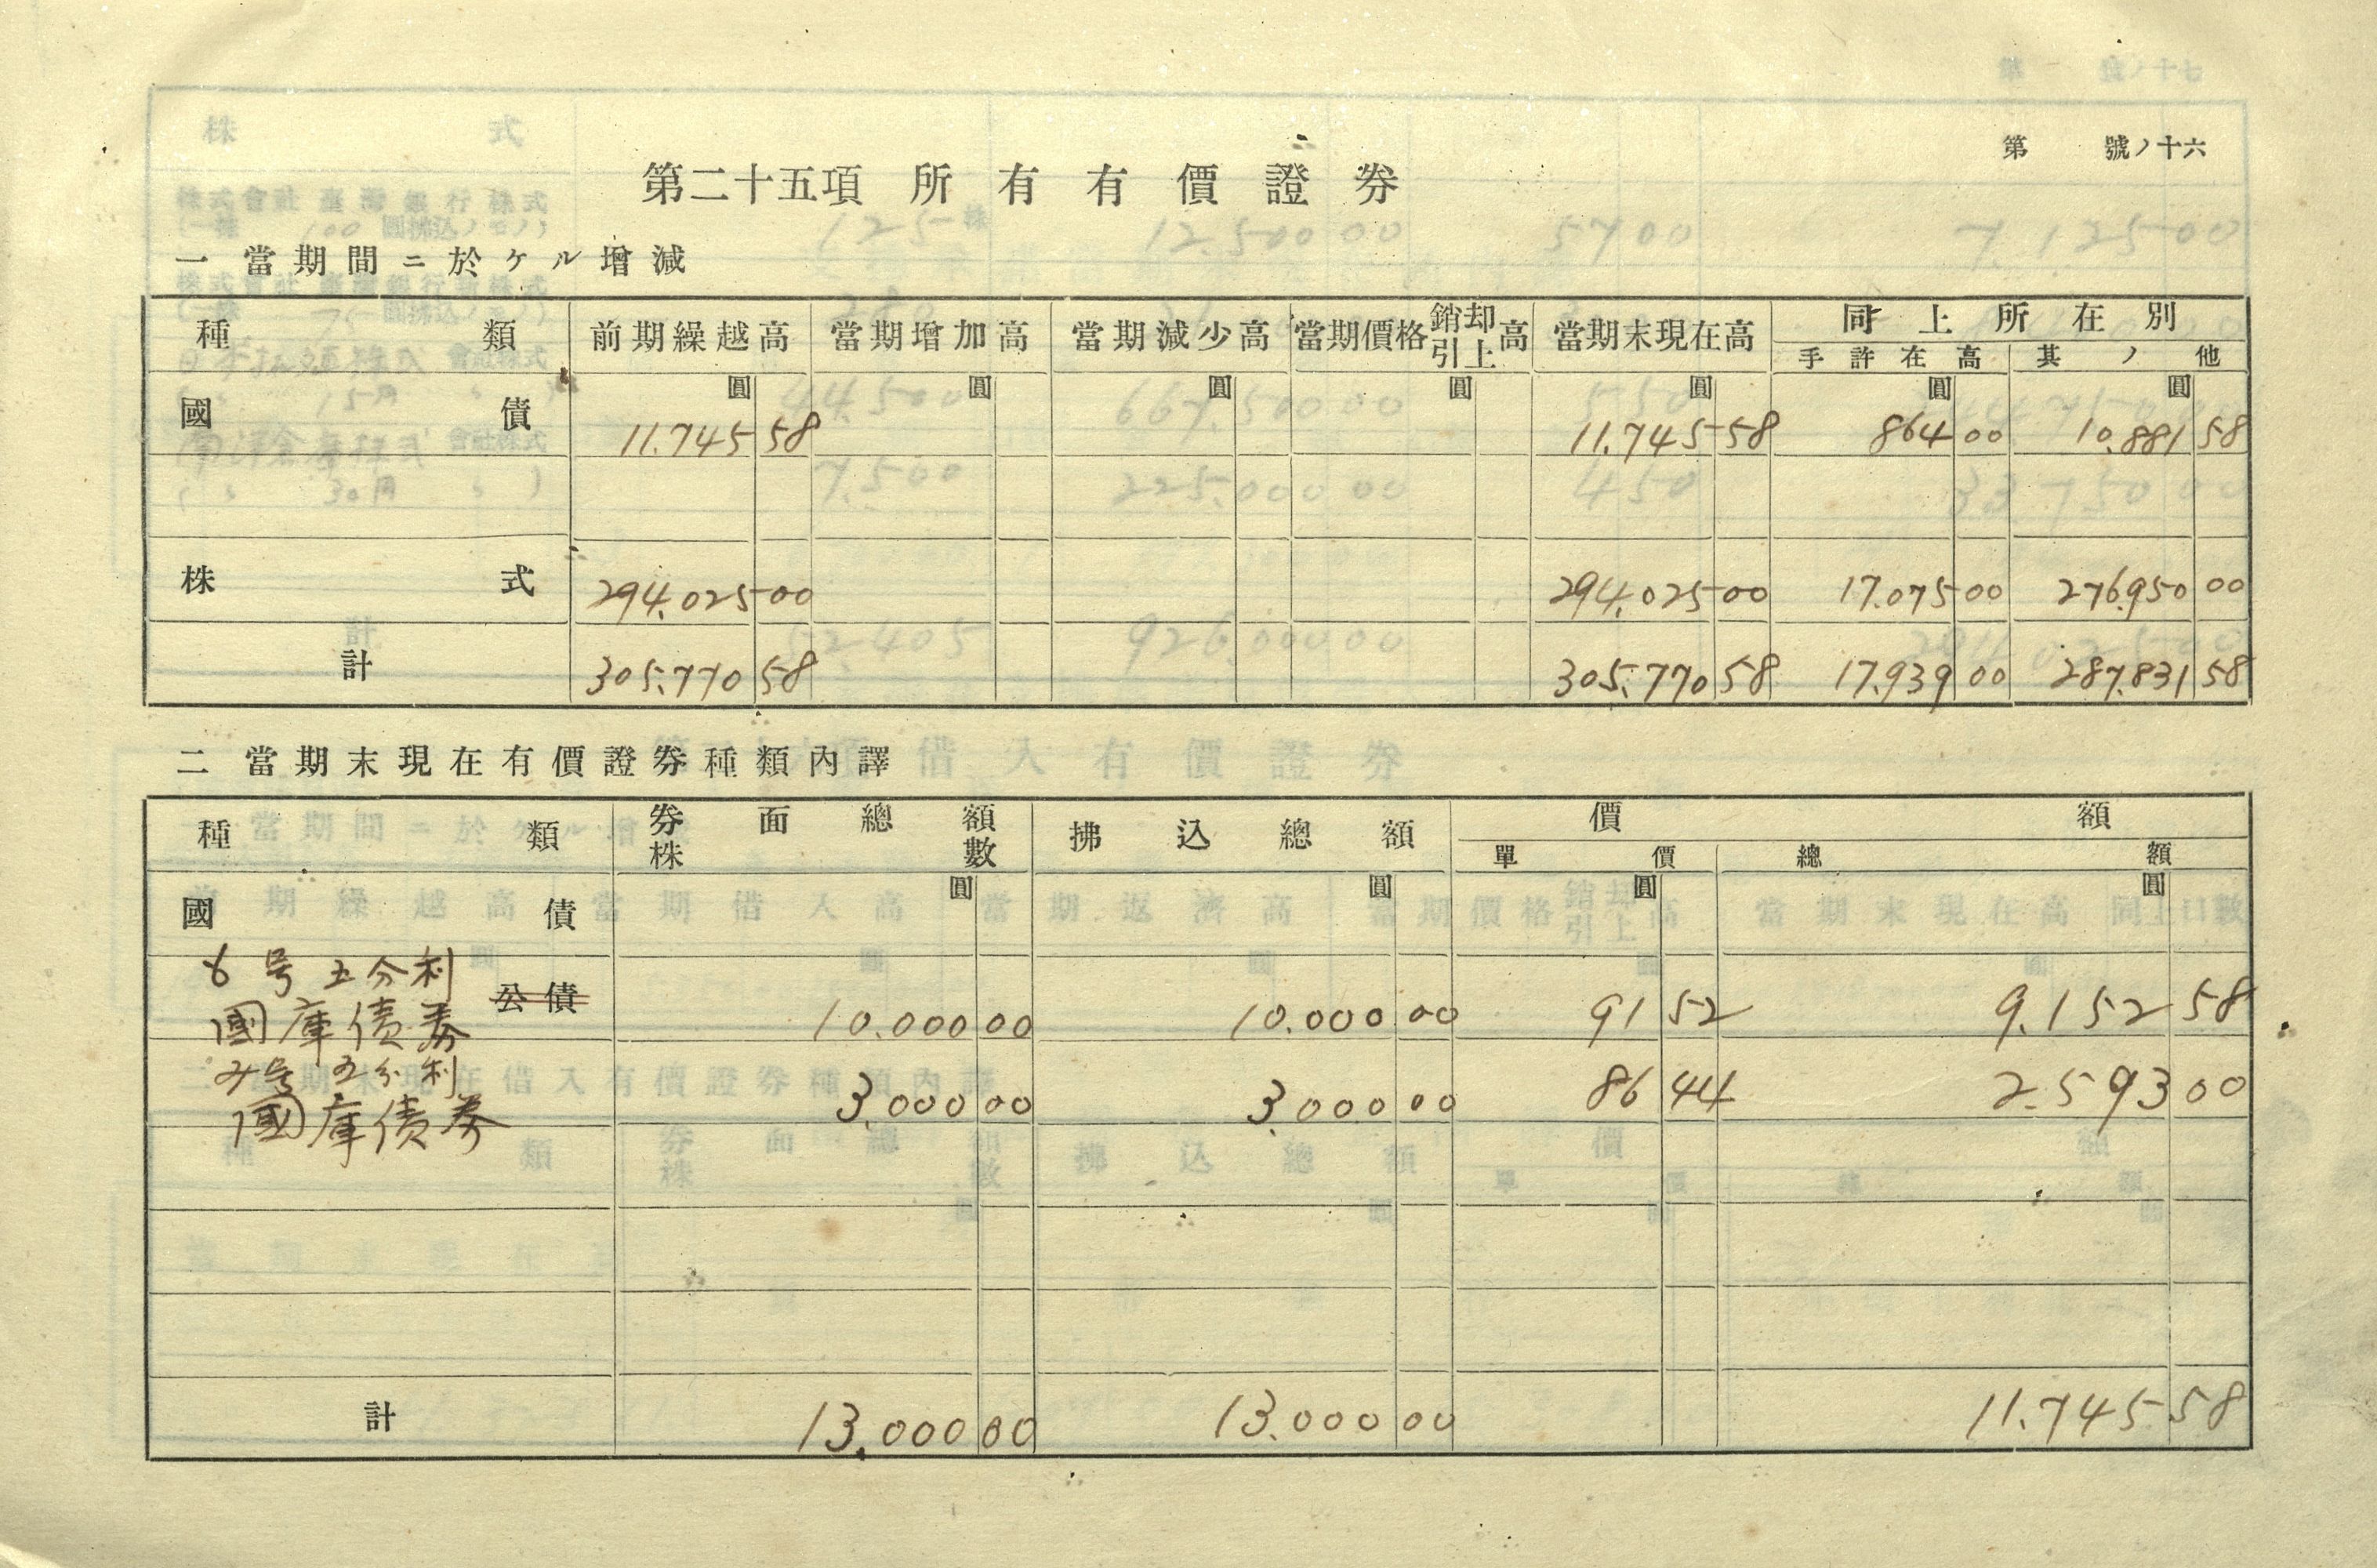 第 號ノ十六
第二十五項 所有有價證券
一 當期間ニ於ケル增減
種類 前期繰越高 當期增加高 當期減少高 當期價格銷却引上高 當期末現在高 同上所在別
手許在高 其ノ他
圓 圓 圓 圓 圓 圓 圓
國債 11.745 58 11.745 58 864 00 10.881 58
株式 294.025 00 294.025 00 17.075 00 276.950 00
計 305.770 58 305.770 58 17.939 00 287.831 58
二 當期末現在有價證券種類內譯
種類 券面總額 株數 拂込總額 價額
單價 總額
國債 圓 圓 圓 圓
号五分利
公債
國庫債券 10.000 00 10.000 00 91 52 9.152 58
号五分利
國庫債券 3.000 00 3.000 00 86 44 2.593 00
計 13.000 00 13.000 00 11.745 58